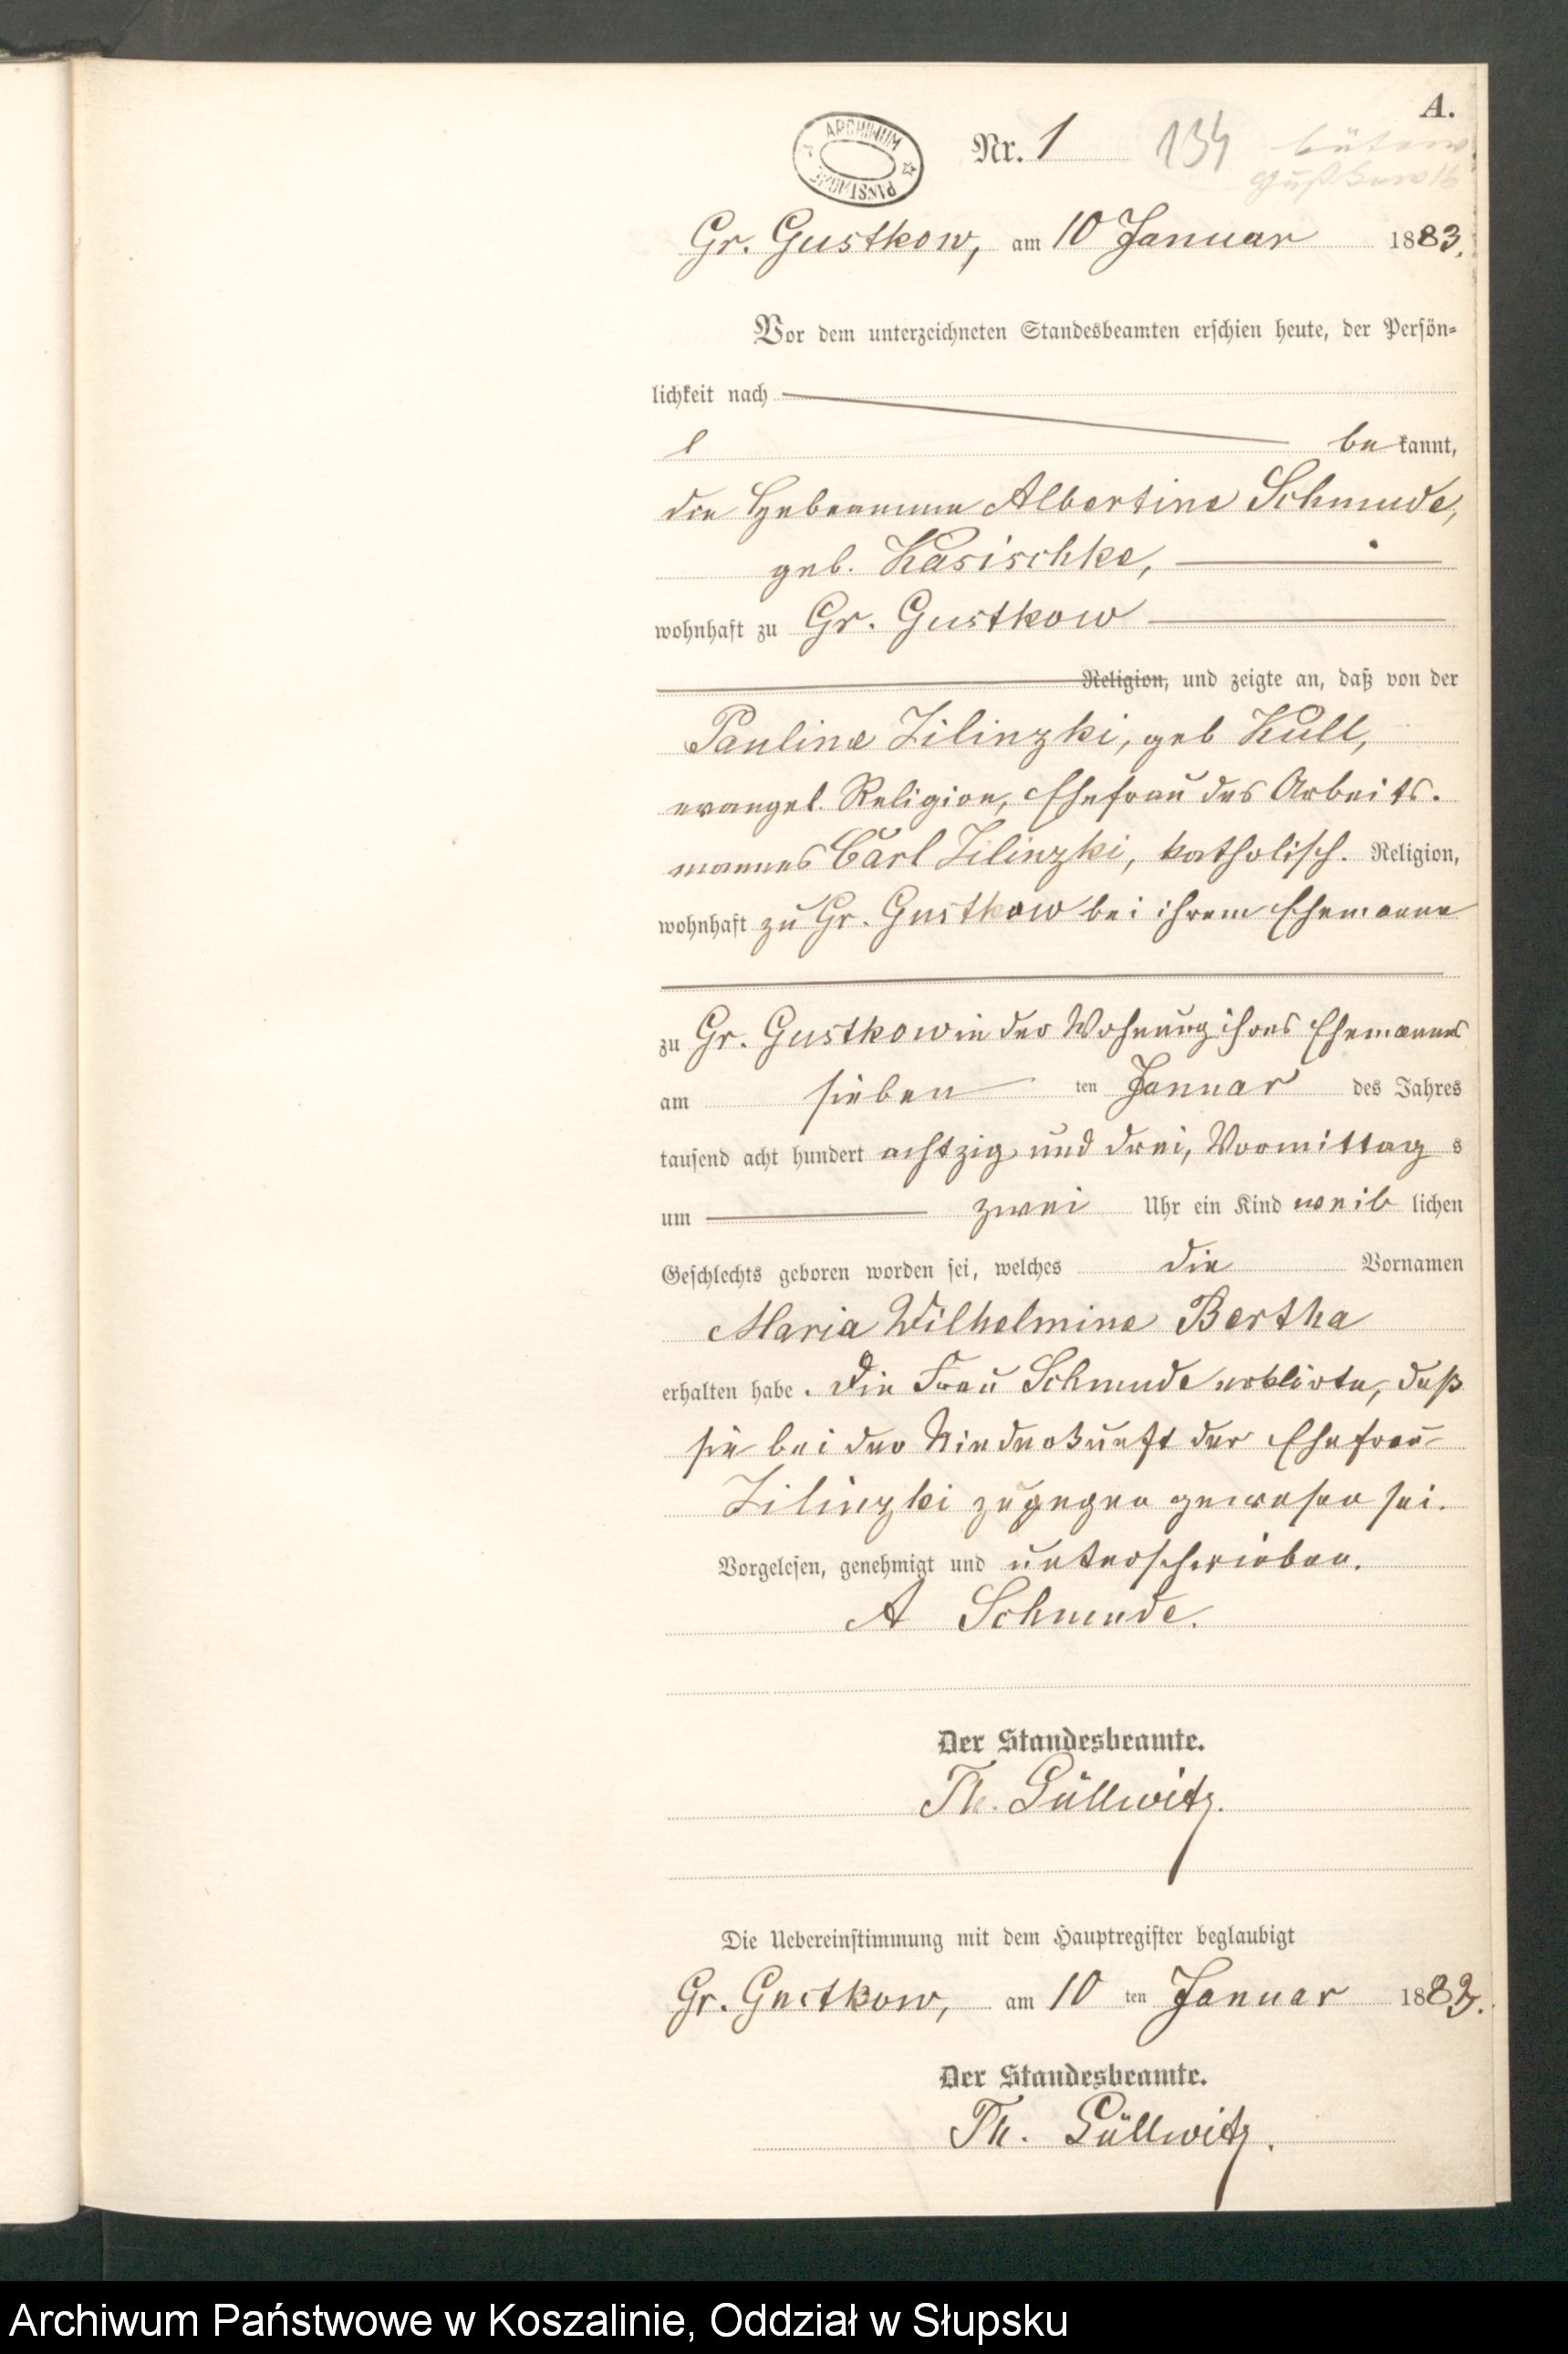 A.
ARCHIWUM PAŃSTWOWE
Nr. 1 134 Bütow
Gr. Gustkow, am 10 Januar 1883.
Vor dem unterzeichneten Standesbeamten erschien heute, der Persön-
lichkeit nach
be kannt,
die Hebeamme Albertine Schmude,
geb. Kasischke,
wohnhaft zu Gr. Gustkow
Religion, und zeigte an, daß von der
Pauline Zilinzki, geb Kull,
evangel. Religion, Ehefrau des Arbeits-
mannes Carl Zilinzki, katholisch. Religion,
wohnhaft zu Gr. Gustkow bei ihrem Ehemanne
zu Gr. Gustkow in der Wohnung ihres Ehemannes
am sieben ten Januar des Jahres
tausend acht hundert achtzig und drei, Vormittag s
um zwei Uhr ein Kind weib lichen
Geschlechts geboren worden sei, welches die Vornamen
Maria Wilhelmine Bertha
erhalten habe. Die Frau Schmude erklärte, daß
sie bei der Niederkunft der Ehefrau
Zilinzki zugegen gewesen sei.
Vorgelesen, genehmigt und unterschrieben.
A Schmude.
Der Standesbeamte.
Th. Güllwitz.
Die Uebereinstimmung mit dem Hauptregister beglaubigt
Gr. Gustkow, am 10 ten Januar 1883.
Der Standesbeamte.
Th. Güllwitz.
Archiwum Państwowe w Koszalinie, Oddział w Słupsku